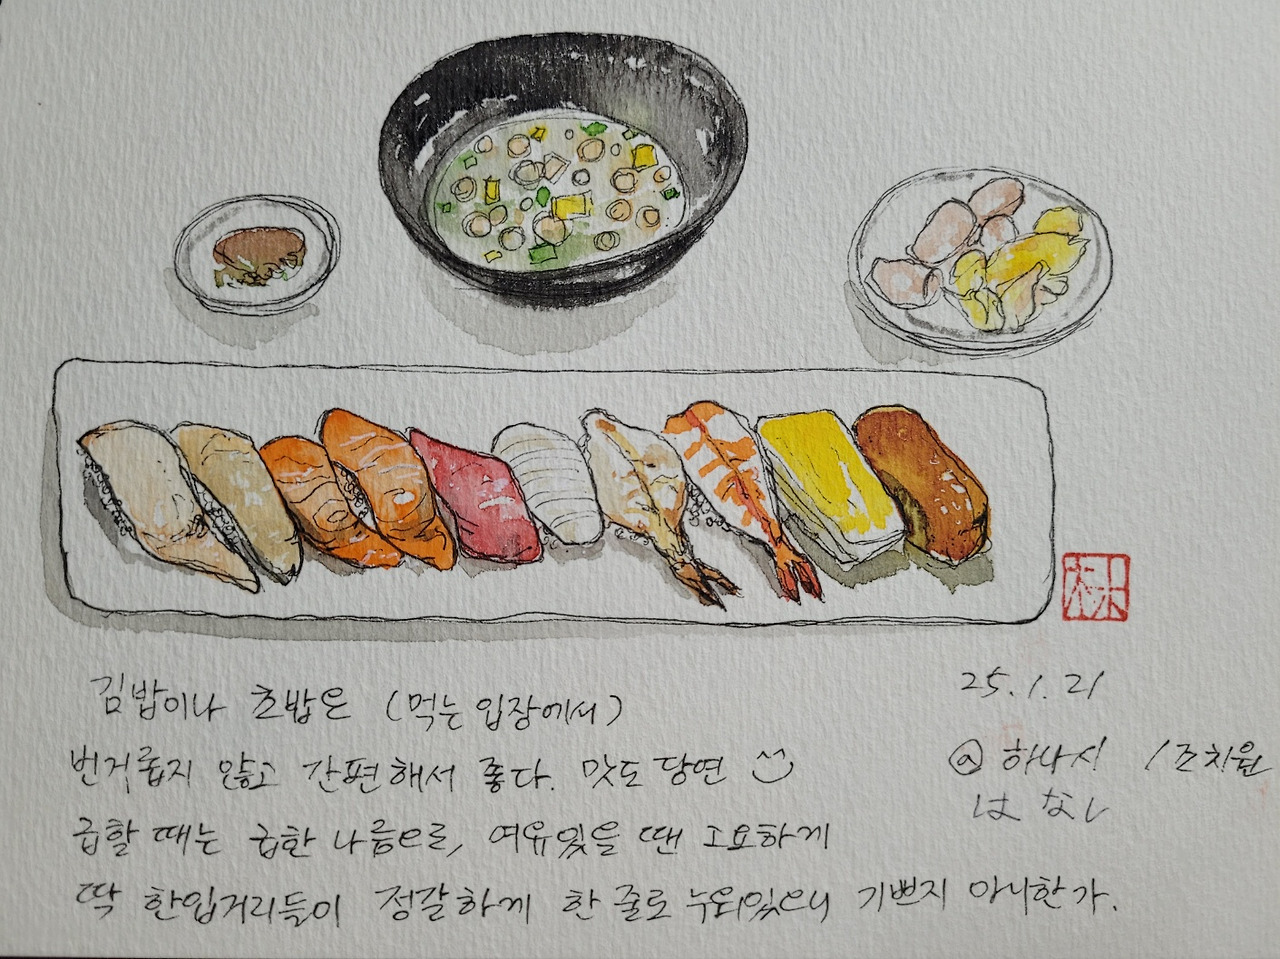 김밥이나 초밥은 (먹는 입장에서)
번거롭지 않고 간편해서 좋다. 맛도 당연
급할 때는 급한 나름으로, 여유있을 땐 고요하게
딱 한입거리들이 정갈하게 한 줄로 누워있으니 기쁘지 아니한가.
25.1.21
@ 하나시 / 조치원
はなし